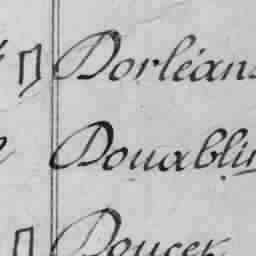 Dorléans
Douablin
Doucer